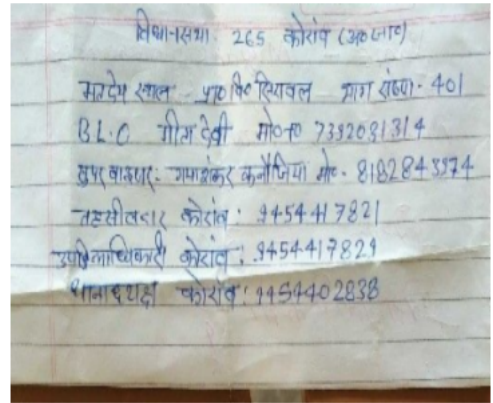 विधानसभा: 265 कोरांव (अ०जा०)
मतदेय स्थल प्रा० वि० सिरावल भाग संख्या - 401
B.L.O गीता देवी मो०न० 7392081314
सुपरवाइजर: गयाशंकर कनौजिया मो०- 8182843974
तहसीलदार कोरांव: 9454417821
उपजिलाधिकारी कोरांव: 9454417829
थानाध्यक्ष कोरांव: 9454402838